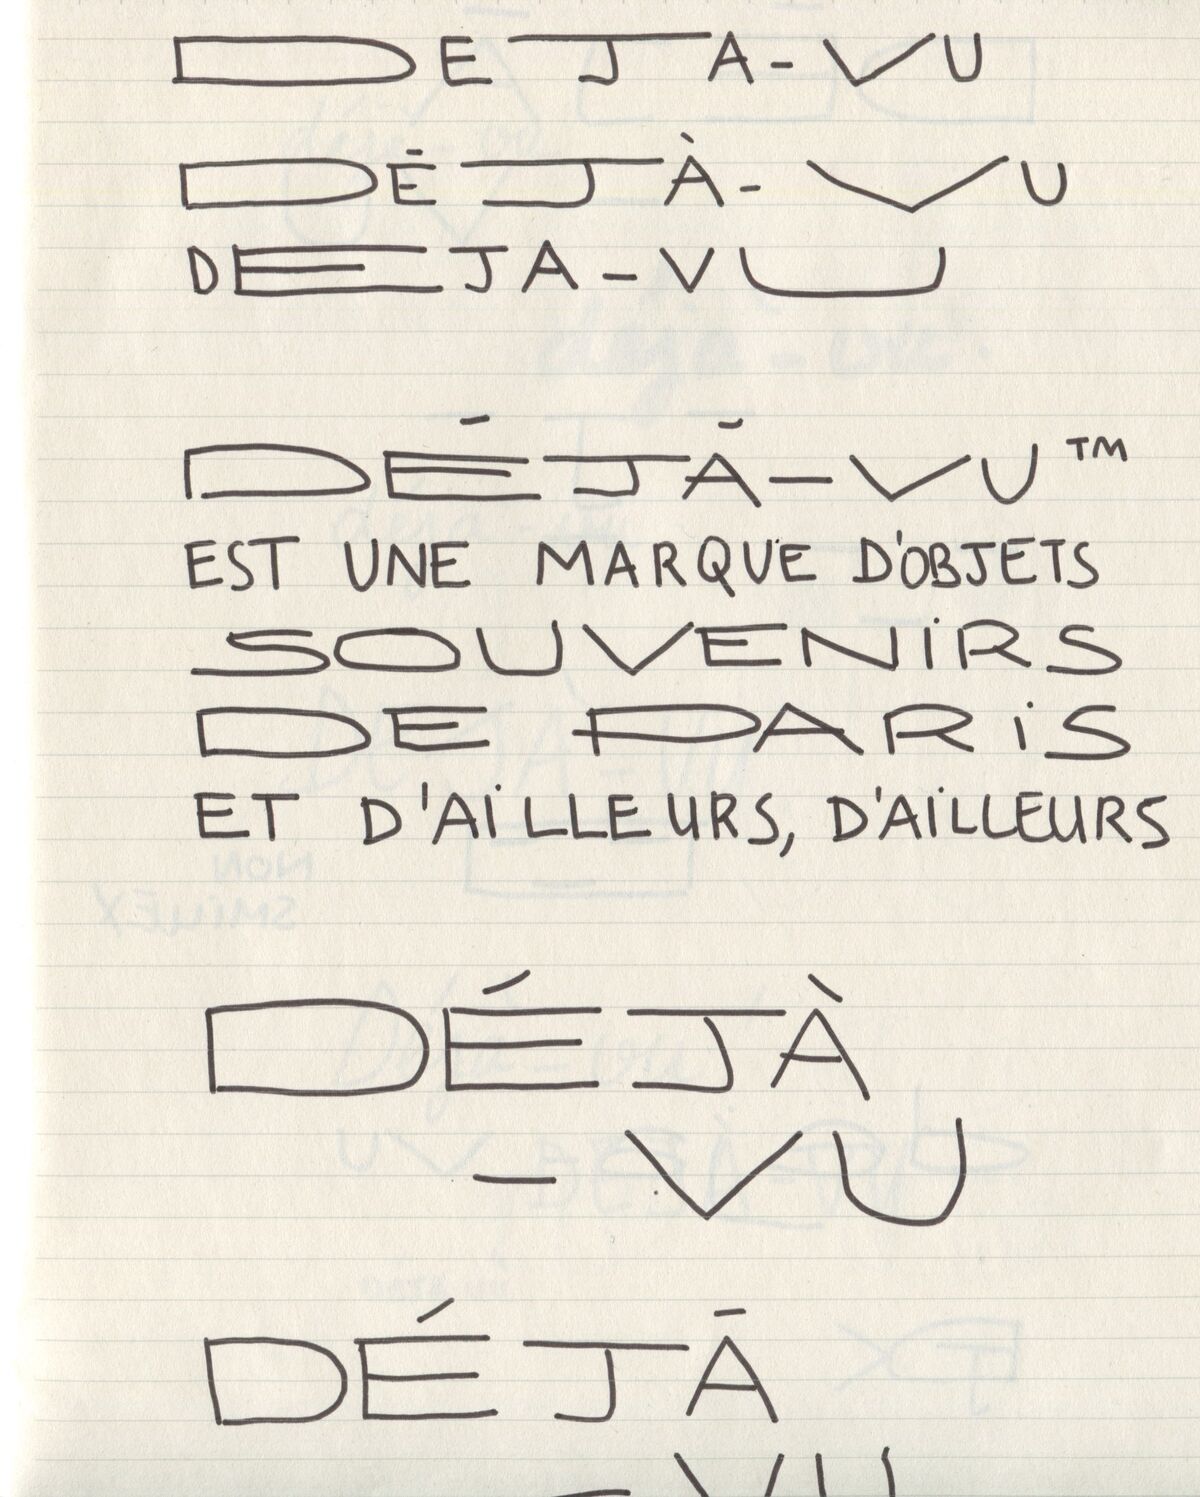 DEJA-VU
DÉJÀ-VU
DEJA-VU
DÉJÀ-VU™
EST UNE MARQUE D'OBJETS
SOUVENIRS
DE PARIS
ET D'AILLEURS, D'AILLEURS
NON
SMILEY
DÉJÀ
-VU
DÉJÀ
-VU